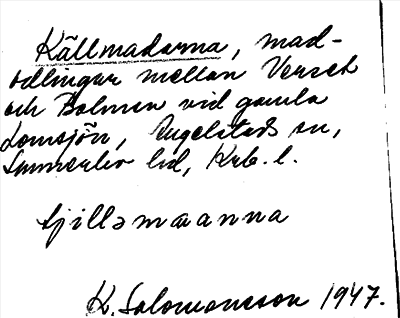 Källmadarna, mad-
odlingar mellan Verset
och Bolmen vid gamla
Lomsjön, Angelstads sn,
Sunnerbo hd, Krb. l.
tjilləmaanna
K. Salomonsson 1947.